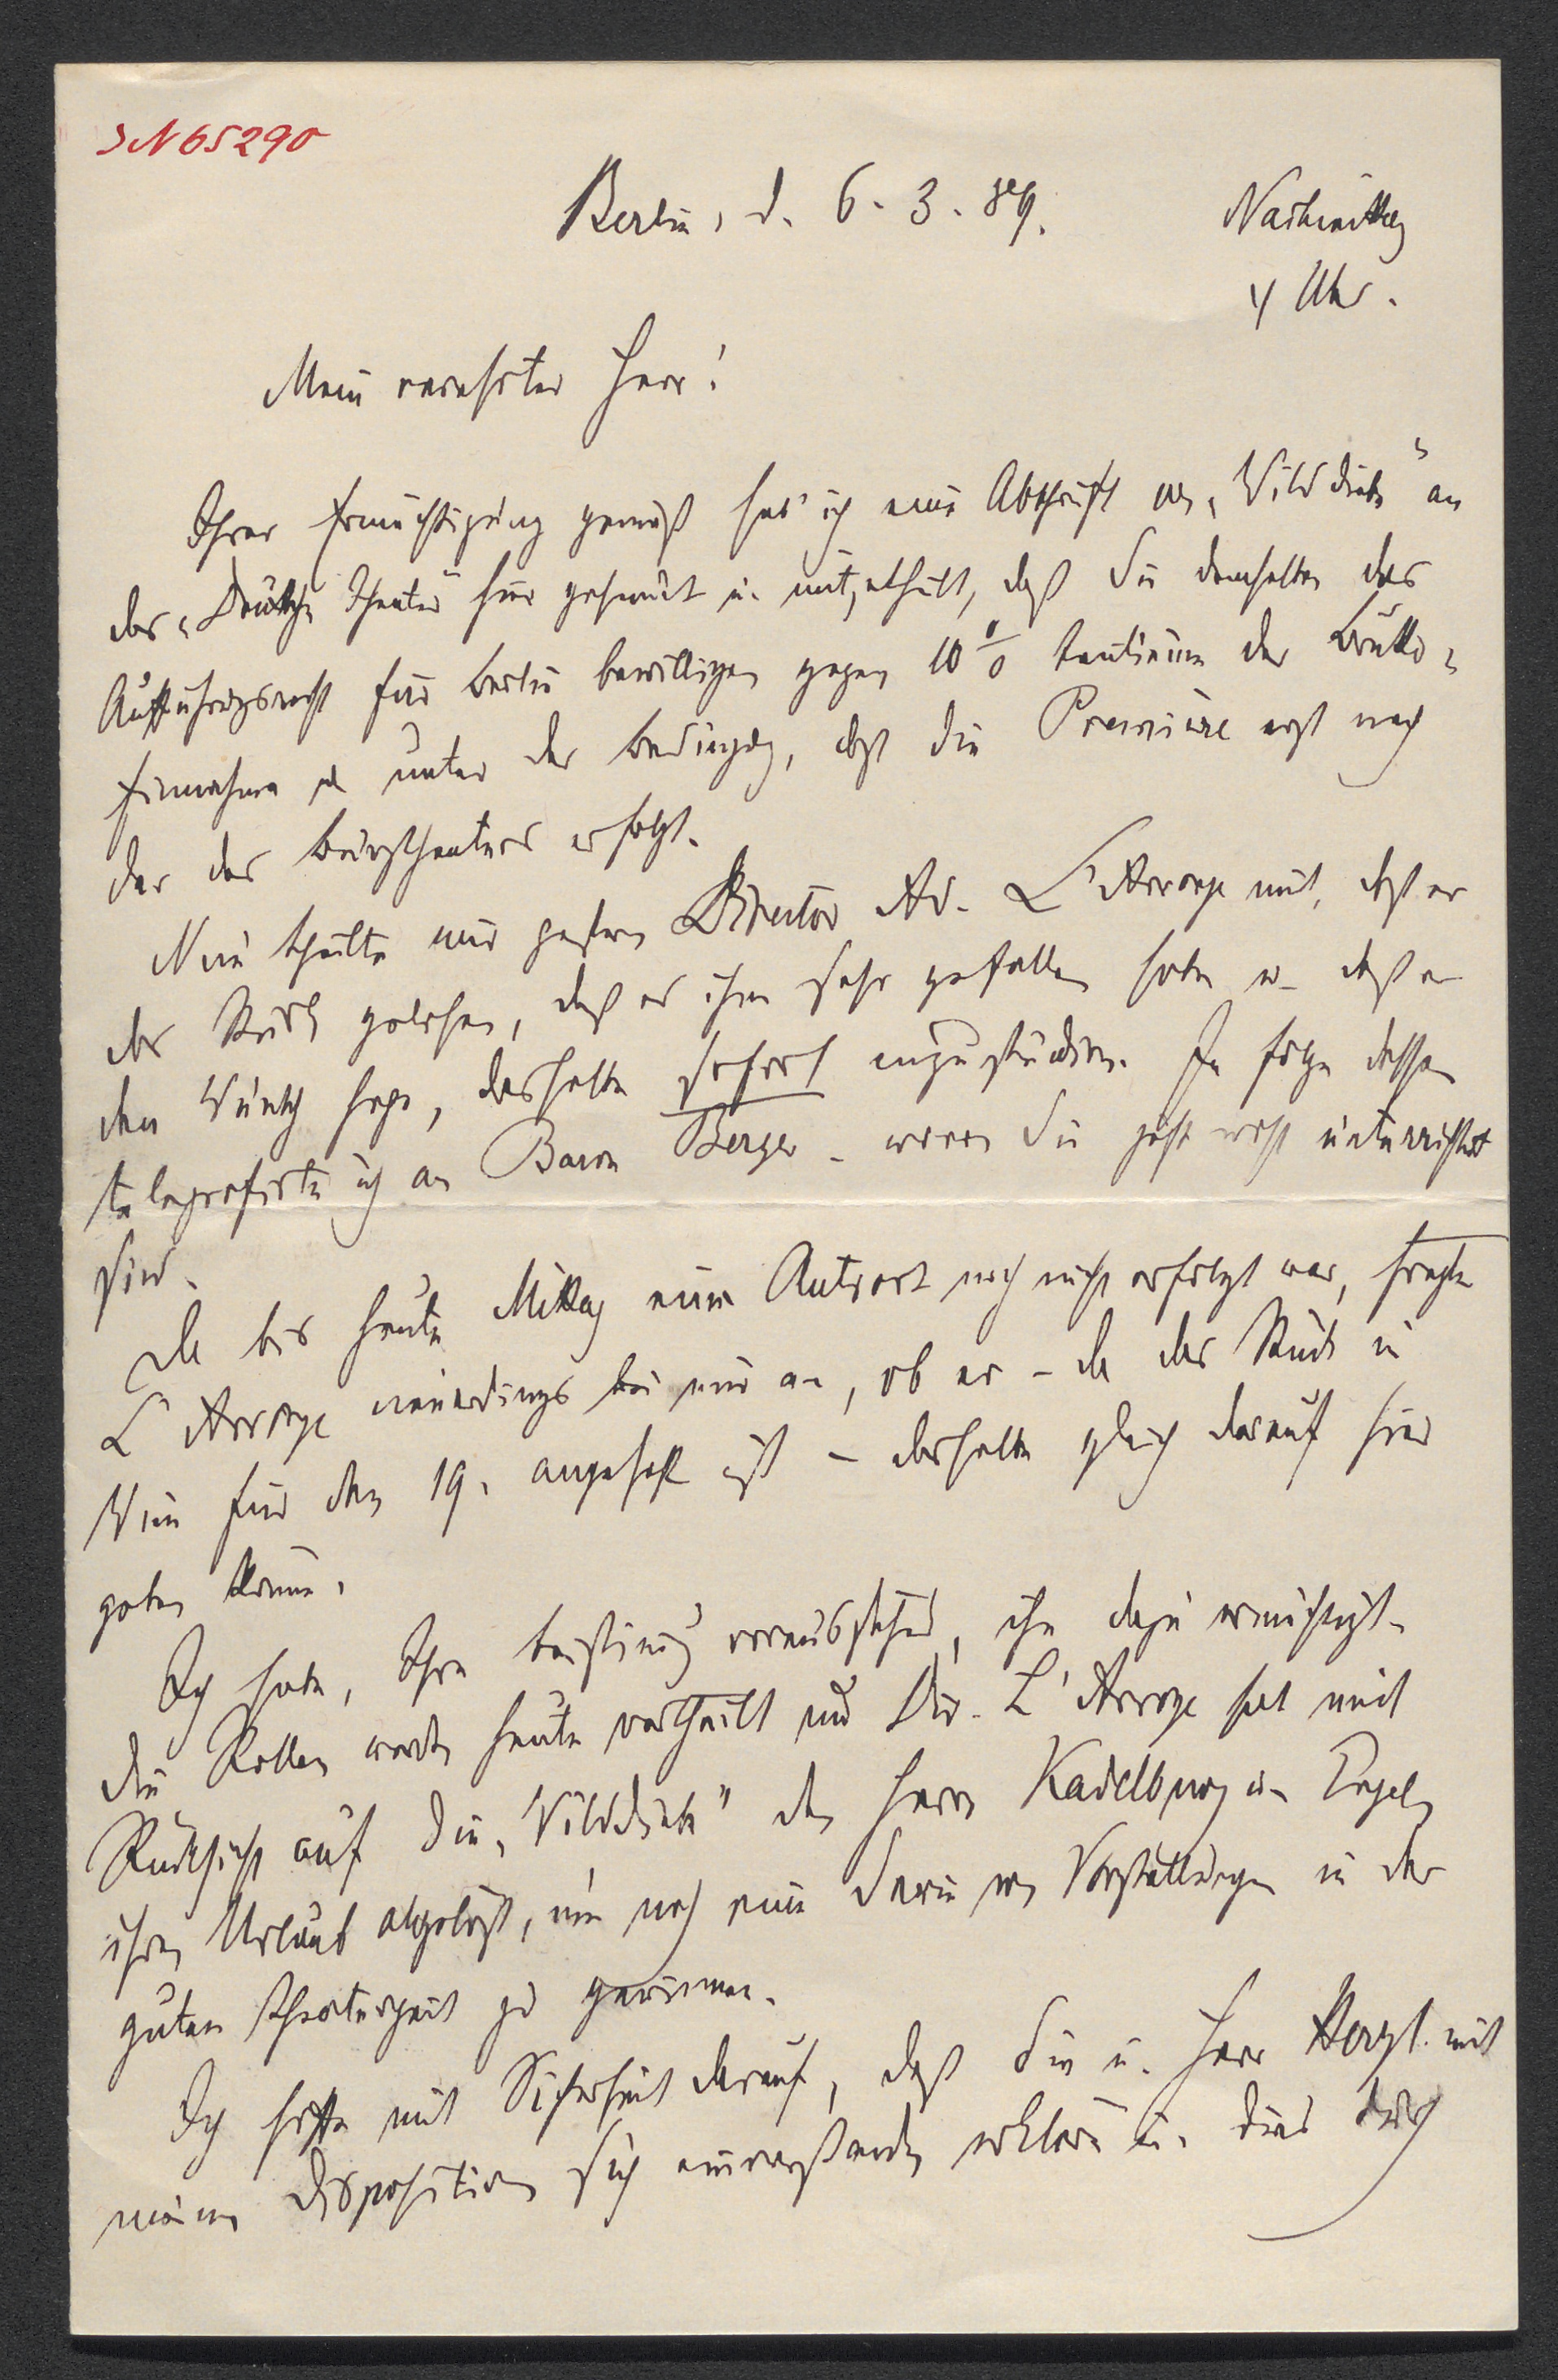 JN 65290
Berlin, d. 6. 3. 89.
Nachmittag
4 Uhr.
Mein verehrter Herr!
Ihrer Ermächtigung gemäß hab' ich eine Abschrift der „Wilddiebe" an
das „Deutsche Theater" hier gesandt u. mitgetheilt, daß Sie demselben das
Aufführungsrecht für Berlin bewilligen gegen 10% Tantième der Brutto-
Einnahme u. unter der Bedingung, daß die Première erst nach
der des Burgtheaters erfolgt.
Nun theilte mir gestern Direktor Ad. L'Arronge mit, daß er
das Stück gelesen, daß es ihm sehr gefallen habe u. daß er
den Wunsch hege, dasselbe sofort einzustudiren. In Folge dessen
telegrafirte ich an Baron Berger – wovon Sie jetzt wohl unterrichtet
sind.
Da bis heute Mittag eine Antwort noch nicht erfolgt war, fragte
L'Arronge neuerdings bei mir an, ob er – da das Stück in
Wien für den 19. angesetzt ist – dasselbe gleich darauf hier
geben könne.
Ich habe, Ihre Zustimmung voraussetzend, ihn dazu ermächtigt.
Die Rollen werden heute vertheilt und Dir. L'Arronge hat mit
Rücksicht auf die „Wilddiebe" den Herren Kadelburg u. Engels
ihren Urlaub abgelöst, um noch eine Serie von Vorstellungen in der
guten Theaterzeit zu gewinnen.
Ich hoffe mit Sicherheit darauf, daß Sie u. Herr Herzl mit
meinen Dispositionen sich einverstanden erklären u. dies durch